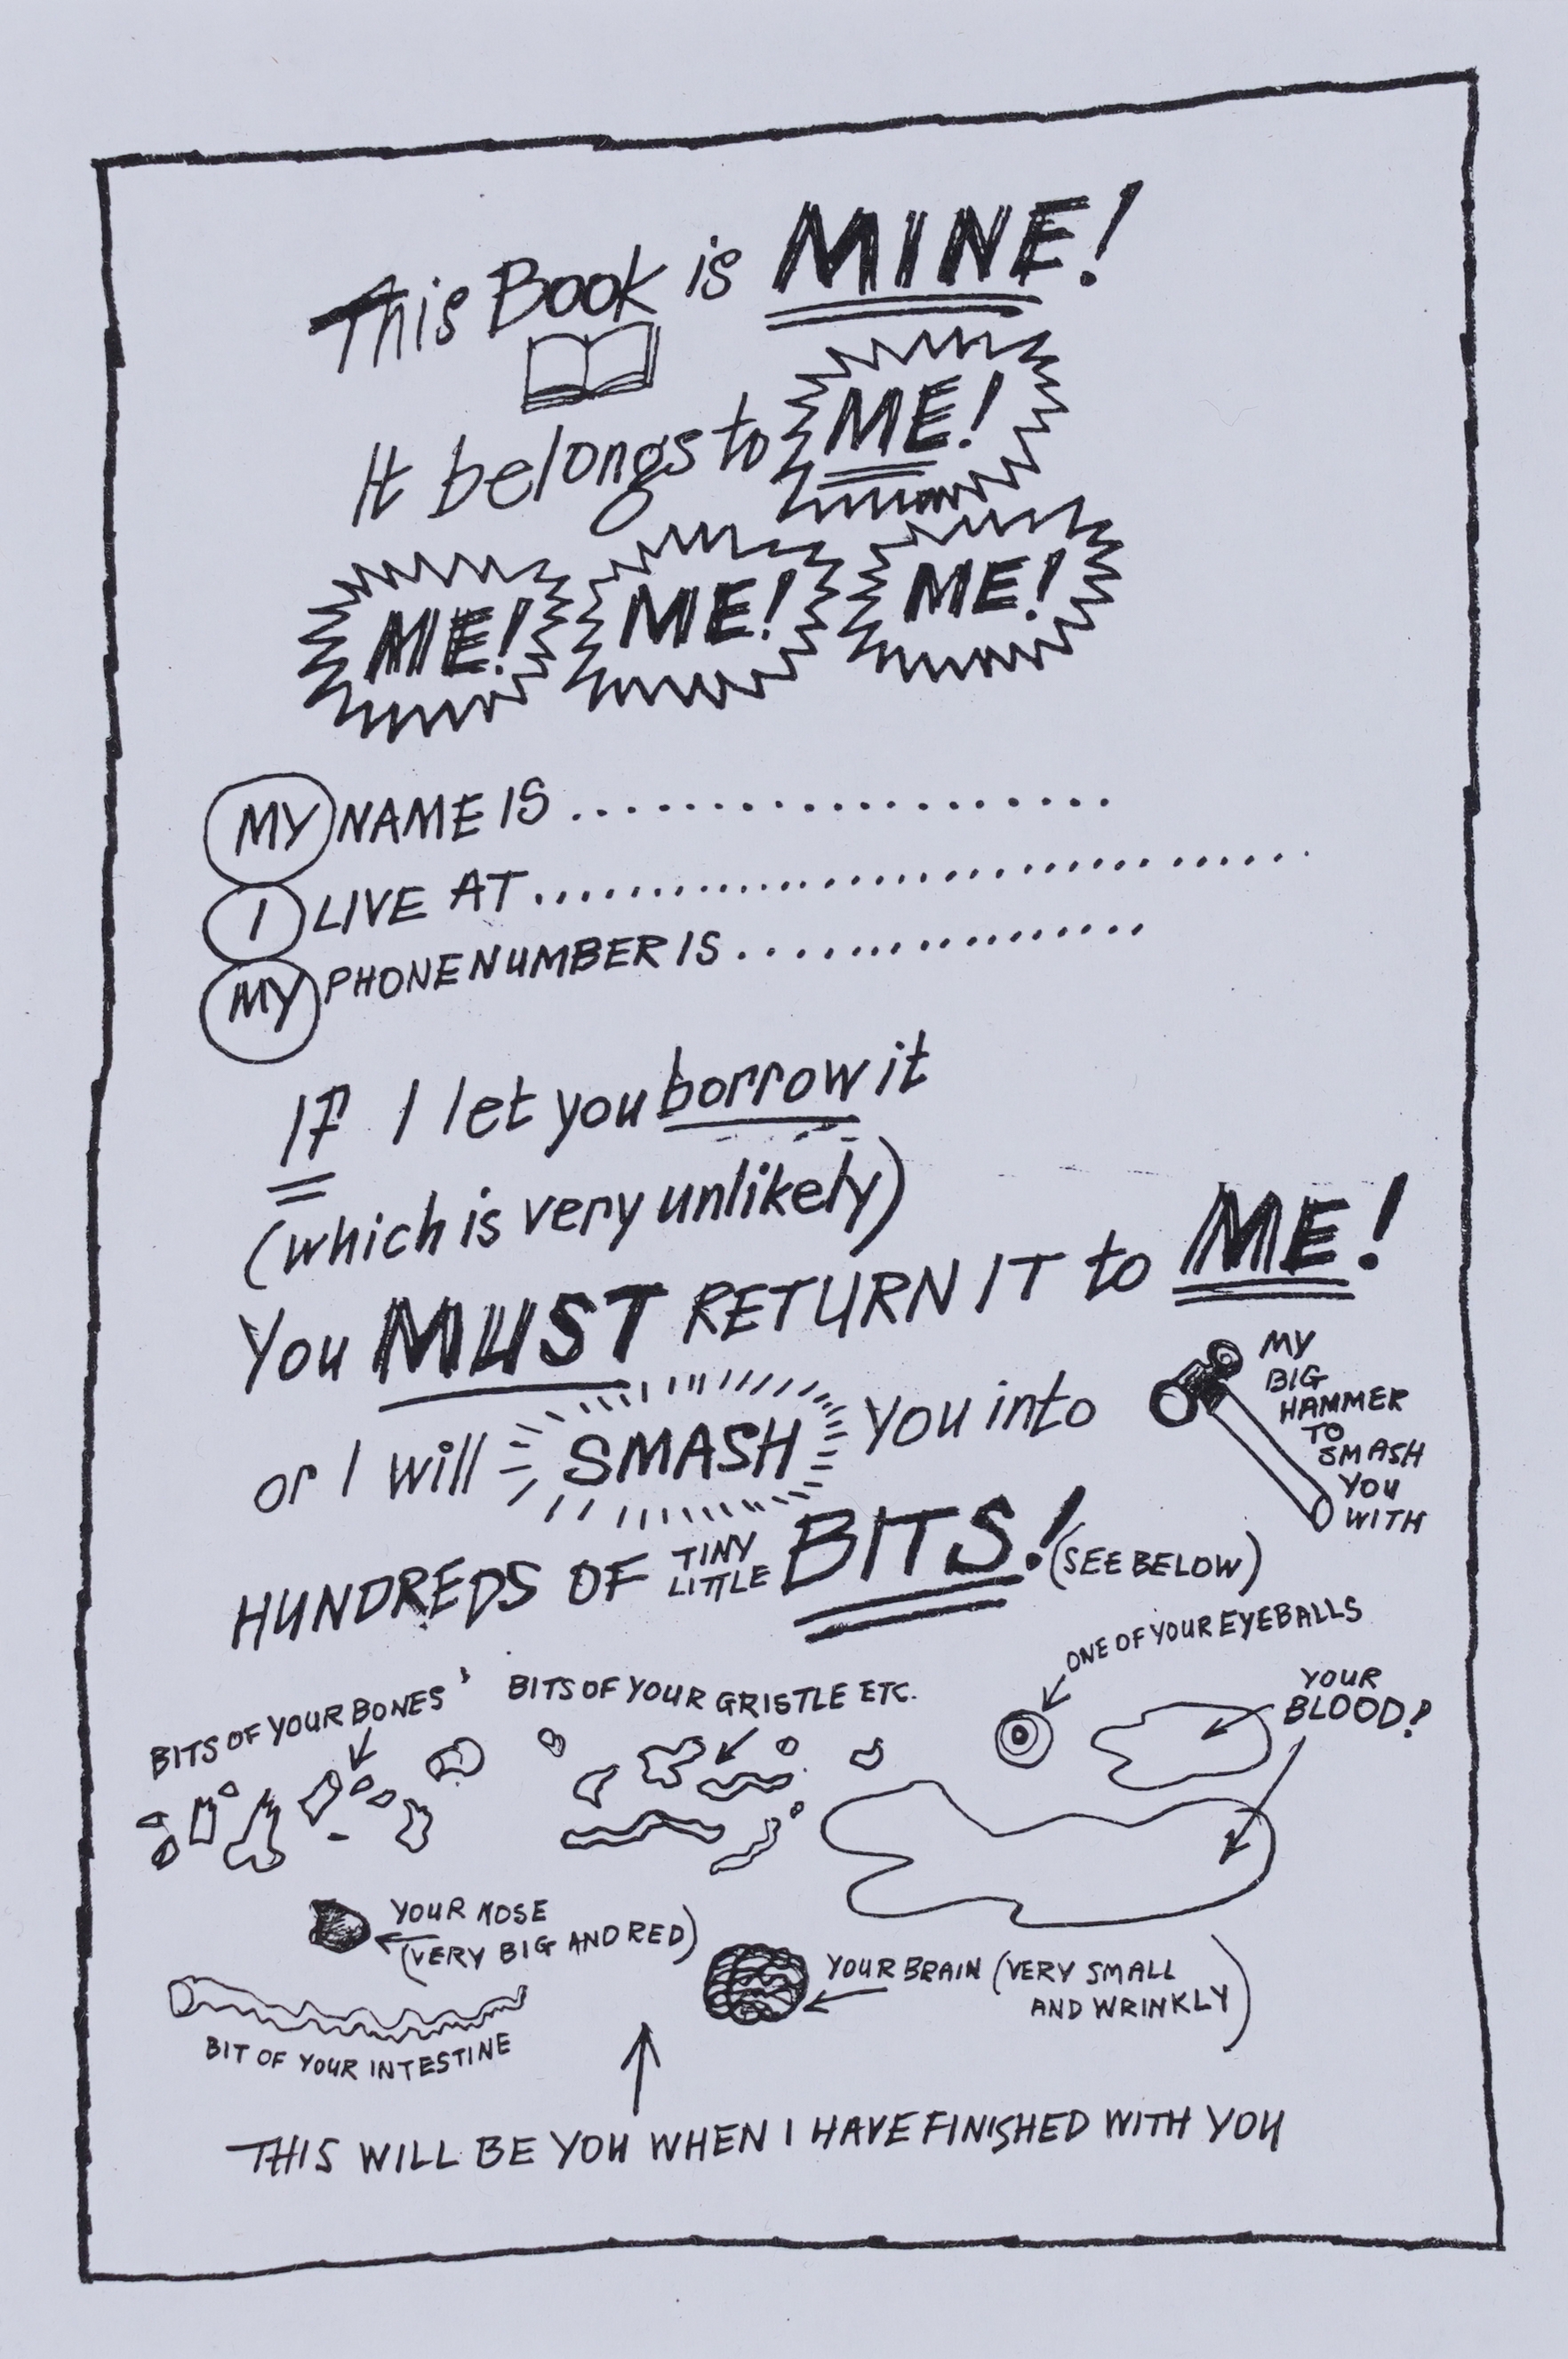 This Book is MINE!
It belongs to ME!
ME! ME! ME!
MY NAME IS ....................
I LIVE AT ..............................
MY PHONE NUMBER IS .................
If I let you borrow it
(which is very unlikely)
You MUST RETURN IT to ME!
or I will SMASH you into
MY
BIG
HAMMER
TO
SMASH
YOU
WITH
HUNDREDS OF TINY LITTLE BITS! (SEE BELOW)
ONE OF YOUR EYEBALLS
BITS OF YOUR BONES
BITS OF YOUR GRISTLE ETC.
YOUR
BLOOD!
YOUR NOSE
(VERY BIG AND RED)
YOUR BRAIN (VERY SMALL
AND WRINKLY)
BIT OF YOUR INTESTINE
THIS WILL BE YOU WHEN I HAVE FINISHED WITH YOU